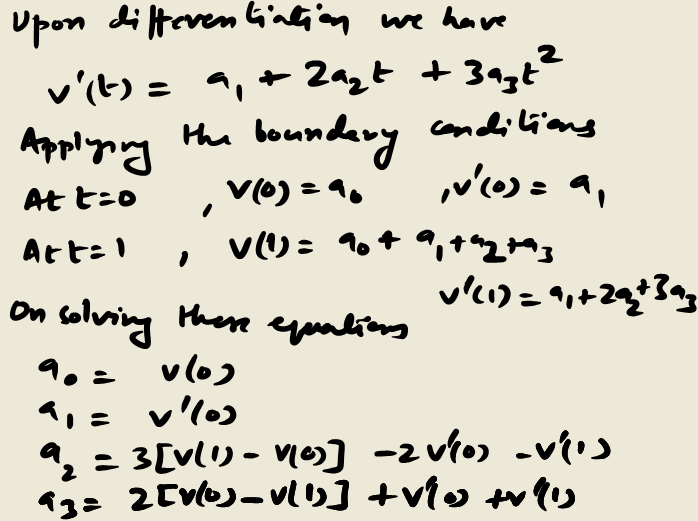 Upon differentiation we have
v'(t) = a₁ + 2a₂t + 3a₃t²
Applying the boundary conditions
At t=0 , v(0) = a₀ , v'(0) = a₁
At t=1 , v(1) = a₀ + a₁ + a₂ + a₃
v'(1) = a₁ + 2a₂ + 3a₃
On solving these equations
a₀ = v(0)
a₁ = v'(0)
a₂ = 3[v(1) - v(0)] - 2v'(0) - v'(1)
a₃ = 2[v(0) - v(1)] + v'(0) + v'(1)